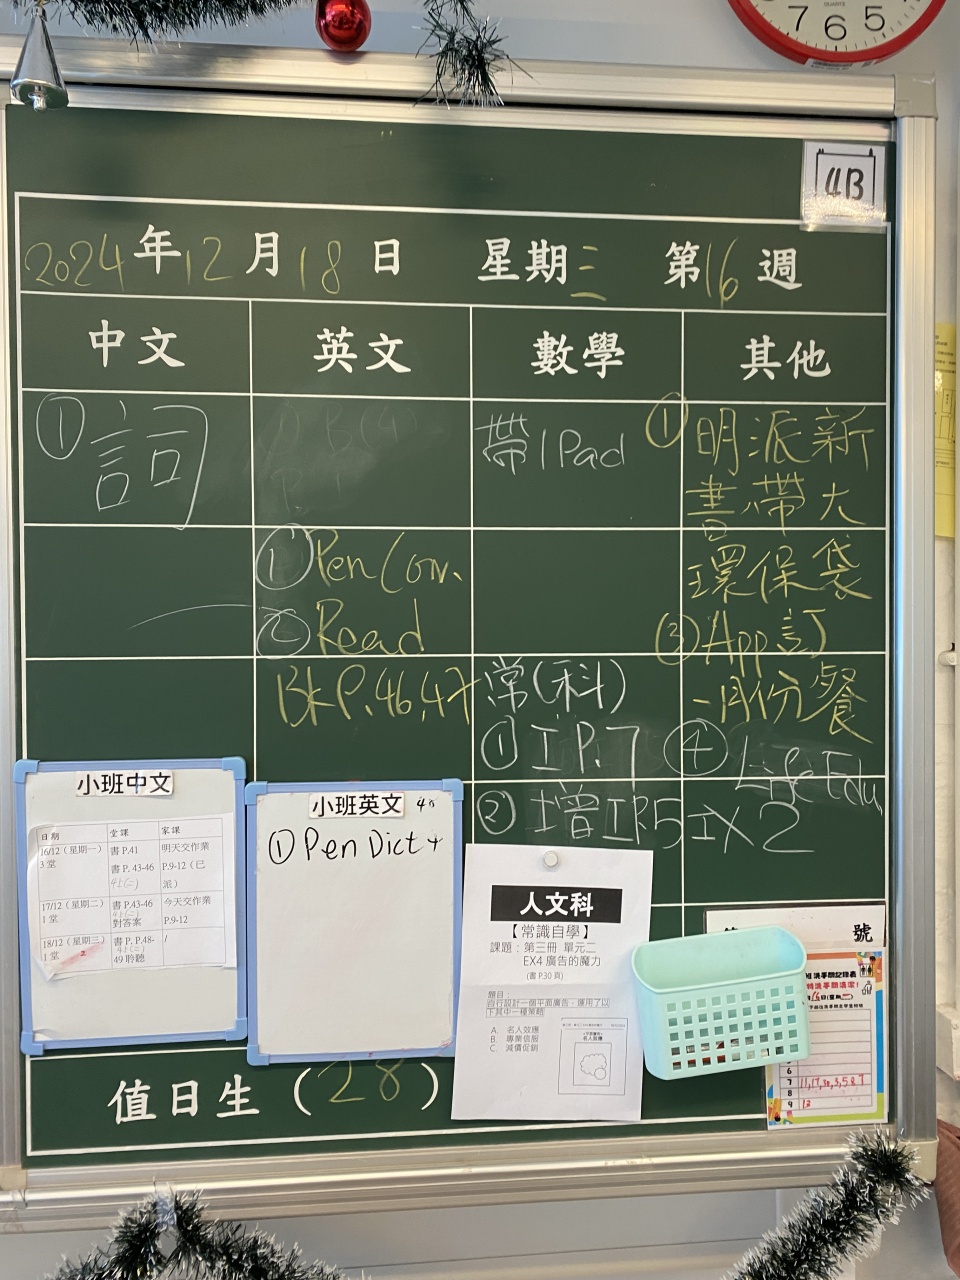 7 6 5
QUARTZ
4B
2024年12月18日 星期三 第16週
中文 英文 數學 其他
①詞
帶IPad
①明派新
書,帶大
環保袋
①Pen Con.
②Read
Bk P.46,47
③App訂
一月份餐
常(科)
①I P.7
②增IP.5
④Life Edu
IX2
小班中文
日期 堂課 家課
16/12（星期一） 書 P.41 明天交作業
3 堂 書 P. 43-46 P.9-12（已
派）
17/12（星期二） 書 P.43-46 今天交作業
1 堂 對答案 P.9-12
18/12（星期三） 書 P. P.48- /
1 堂 49 聆聽
小班英文
①Pen Dict
人文科
【常識自學】
課題：第三冊 單元二
EX4 廣告的魔力
(書 P.30 頁)
題目：
自行設計一個平面廣告，運用了以
下其中一種策略
A. 名人效應
B. 專業信服
C. 減價促銷
名人效應
號
6
7 11,17,
8
9 12
值日生（28）